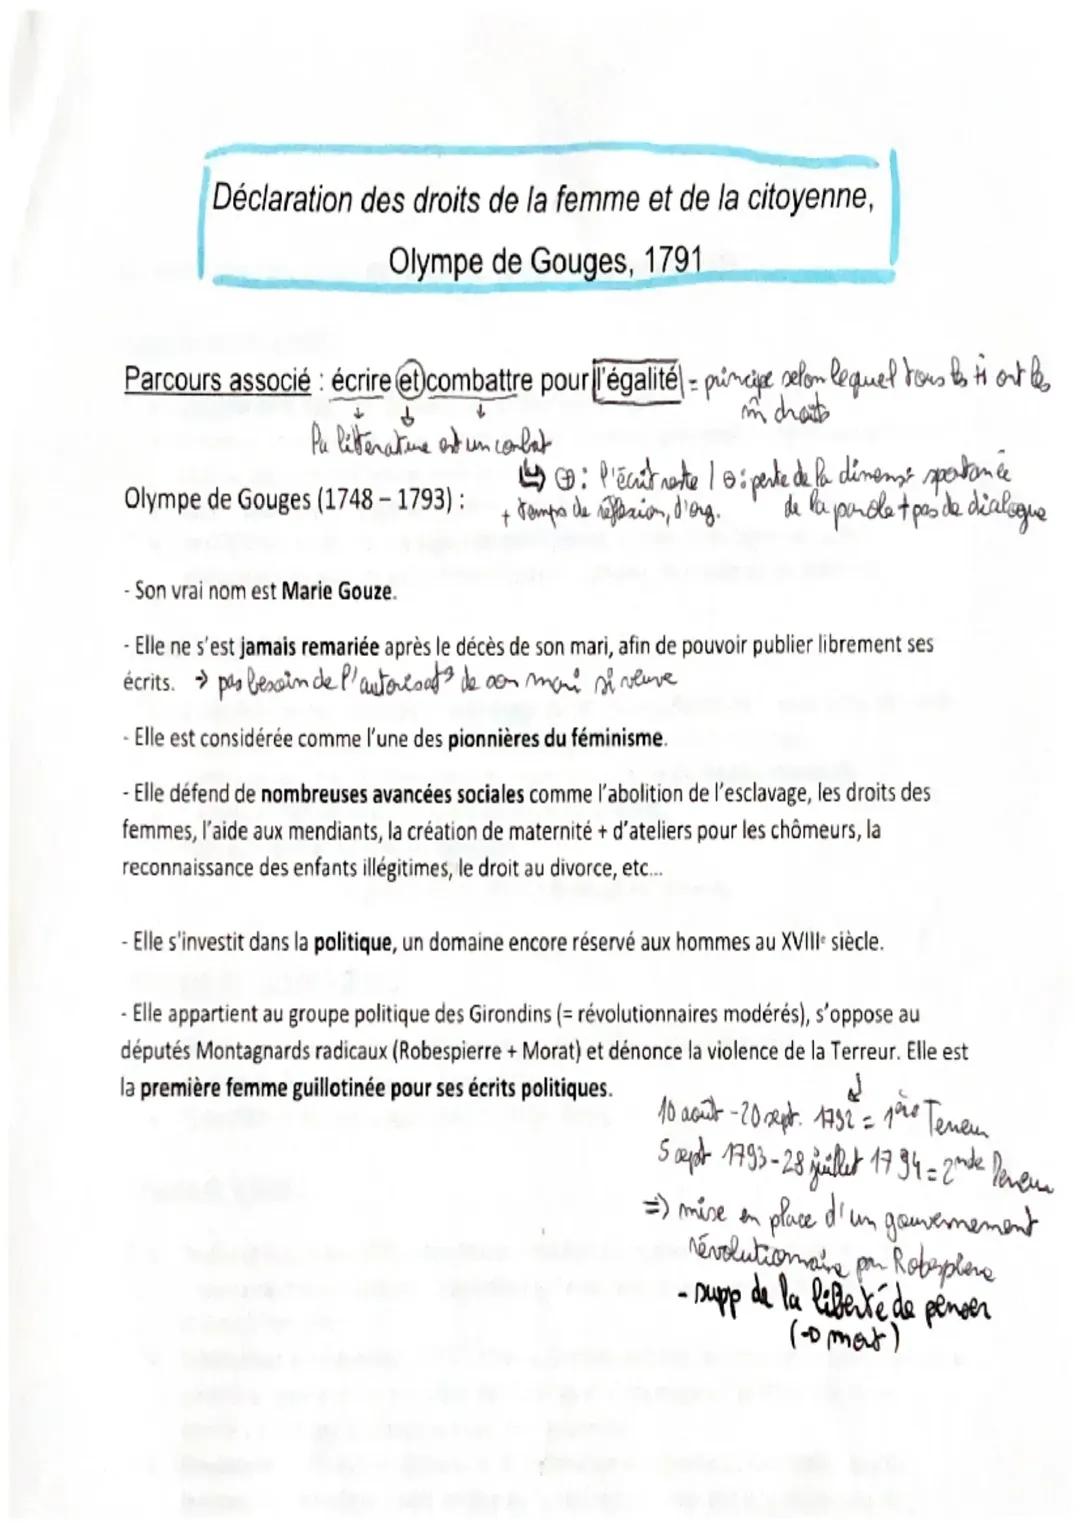 Déclaration des droits de la femme et de la citoyenne,
Olympe de Gouges, 1791
Parcours associé : écrire et combattre pour l'égalité = principe selon lequel tous les H ont les
m̂ droits
la littérature est un combat
↳ ⊕ : l'écrit reste / ⊖ : perte de la dimens° spontanée
Olympe de Gouges (1748 – 1793) : + temps de réflexion, d'org. de la parole + pas de dialogue
- Son vrai nom est Marie Gouze.
- Elle ne s'est jamais remariée après le décès de son mari, afin de pouvoir publier librement ses
écrits. → pas besoin de l'autorisat° de son mari si veuve
- Elle est considérée comme l'une des pionnières du féminisme.
- Elle défend de nombreuses avancées sociales comme l'abolition de l'esclavage, les droits des
femmes, l'aide aux mendiants, la création de maternité + d'ateliers pour les chômeurs, la
reconnaissance des enfants illégitimes, le droit au divorce, etc...
- Elle s'investit dans la politique, un domaine encore réservé aux hommes au XVIIIe siècle.
- Elle appartient au groupe politique des Girondins (= révolutionnaires modérés), s'oppose au
députés Montagnards radicaux (Robespierre + Morat) et dénonce la violence de la Terreur. Elle est
la première femme guillotinée pour ses écrits politiques.
10 août - 20 sept. 1792 = 1ère Terreur
5 sept 1793 - 28 juillet 1794 = 2nde Terreur
=> mise en place d'un gouvernement
révolutionnaire par Robespierre
- supp de la liberté de penser
(→ mort)